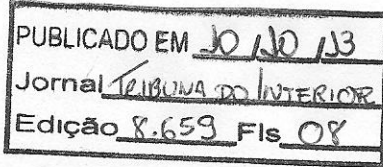 PUBLICADO EM 10/10/13
Jornal TRIBUNA DO INTERIOR
Edição 8.659 Fls 08